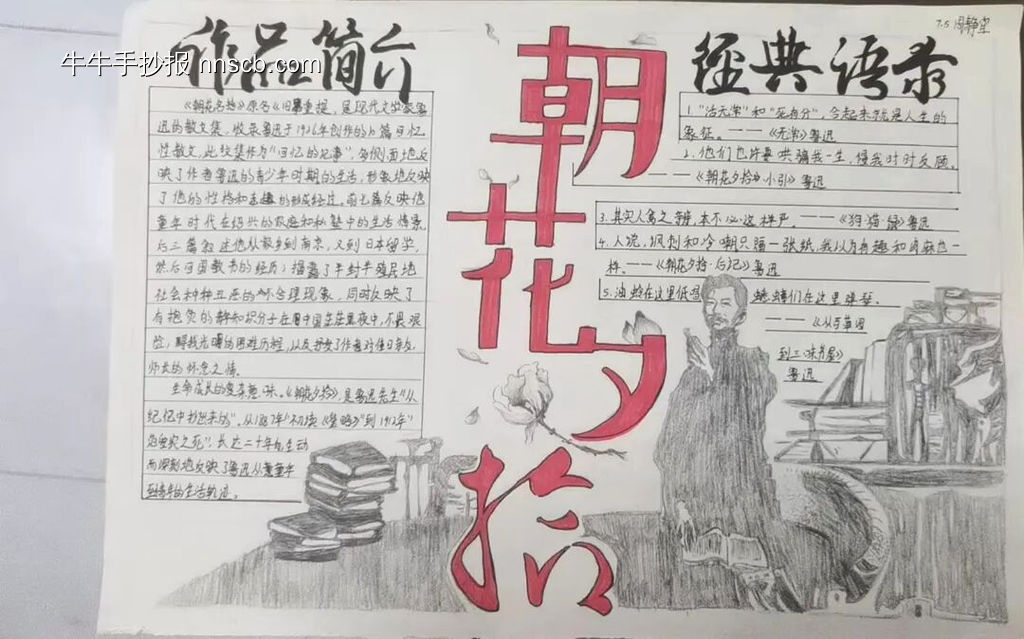 7.5 周静莹
牛牛手抄报 nnscb.com
作品简介
《朝花夕拾》原名《旧事重提，是现代文学家鲁
迅的散文集，收录鲁迅于1926年创作的10篇回忆
性散文，此文集作为“回忆的记事”，多侧面地反
映了作者鲁迅的青少年时期的生活，形象地反映
了他的性格和志趣的形成经过。前七篇反映他
童年时代在绍兴的家庭和私塾中的生活情景，
后三篇叙述他从家乡到南京，又到日本留学，
然后回国教书的经历；揭露了半封半殖民地
社会种种丑恶的不合理现象，同时反映了
有抱负的青年知识分子在旧中国茫茫黑夜中，不畏艰
险，寻找光明的困难历程，以及抒发了作者对往日亲友
师长的怀念之情。
生命成长的复杂意味。《朝花夕拾》，是鲁迅先生“从
记忆中抄出来的”。从1887年“初读《鉴略》”到1912年“
范爱农之死”，长达二十年，生动
而深刻地反映了鲁迅从童年
到青年的生活轨迹。
朝花夕拾
经典语录
1.“活无常”和“死有分”，合起来就是人生的
象征。——《无常》鲁迅
2.他们也许要哄骗我一生，使我时时反顾。
——《朝花夕拾》小引》鲁迅
3.其实人禽之辨，本不必这样严。——《狗·猫·鼠》鲁迅
4.人说，讽刺和冷嘲只隔一张纸，我以为有趣和肉麻也一
样。——《朝花夕拾·后记》鲁迅
5.油蛉在这里低唱 蟋蟀们在这里弹琴。
——《从百草园
到三味书屋》
鲁迅